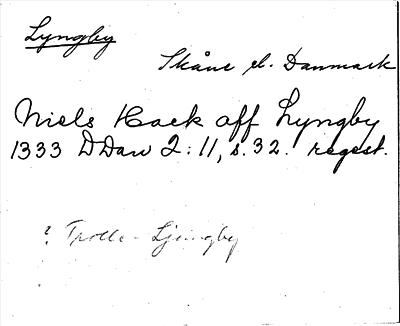 Lyngby
Skåne el. Danmark
Niels Hack off Lyngby
1333 DDan 2:11, s. 32. regest.
? Trolle-Ljungby